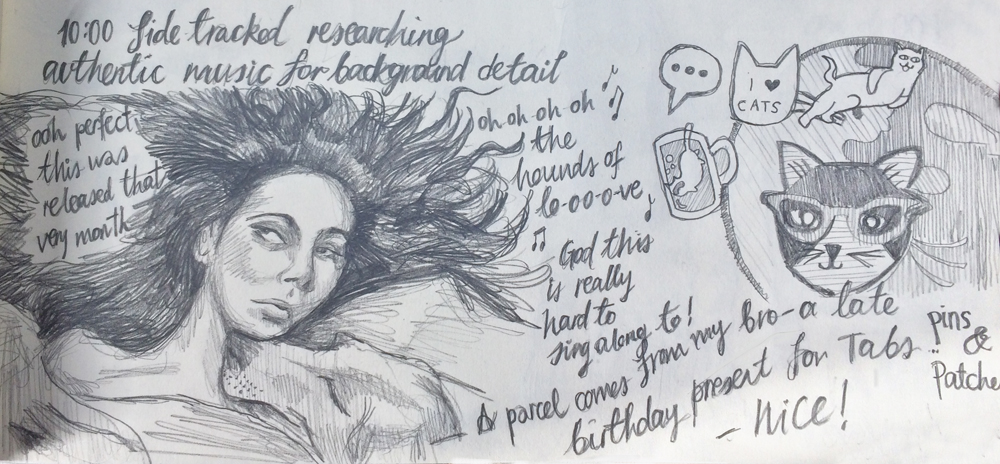 10:00 Side tracked researching
authentic music for background detail
ooh perfect,
this was
released that
very month
oh-oh-oh-oh
the
hounds of
lo-o-o-ve
God this
is really
hard to
sing along to!
I ♥
CATS
A parcel comes from my bro - a late
birthday present for Tabs..
- nice!
pins
&
Patche